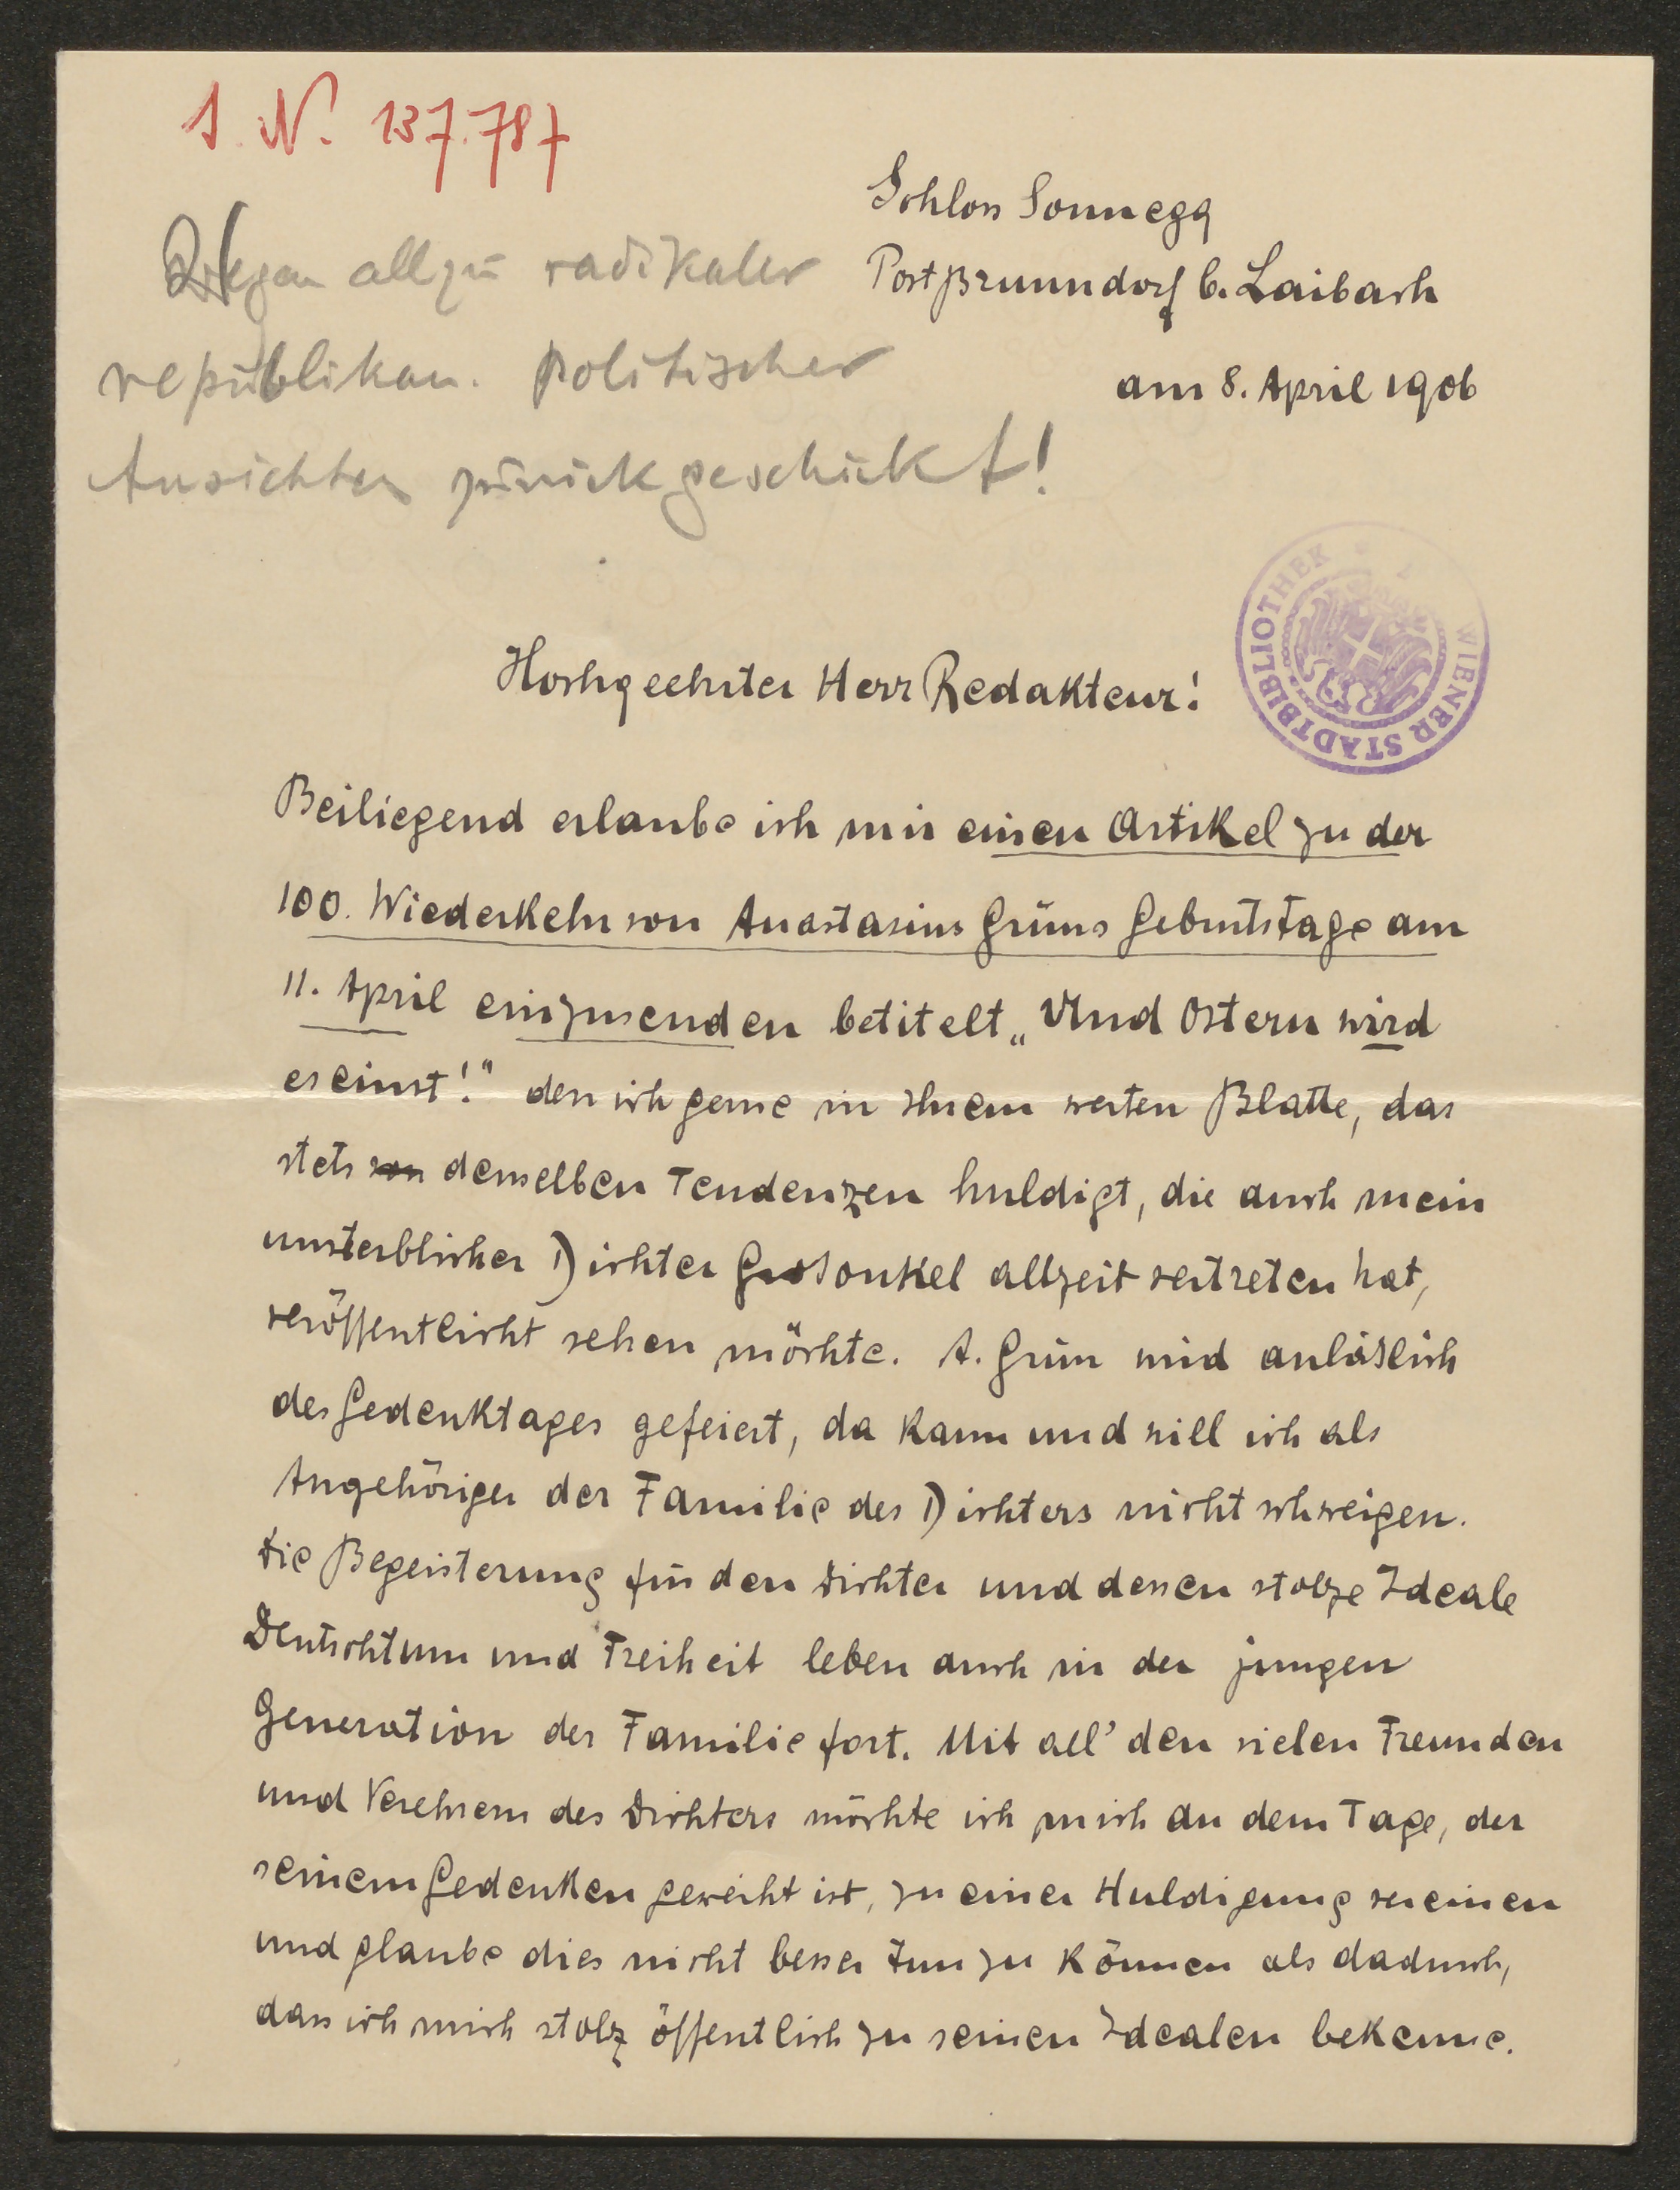 I. N. 137.787
Wegen allzu radikaler
republikan. politischer
Ansichten zurückgeschickt!
Schloss Sonnegg
Post Brunndorf b. Laibach
am 8. April 1906
WIENER STADTBIBLIOTHEK
Hochgeehrter Herr Redakteur!
Beiliegend erlaube ich mir einen Artikel zu der
100. Wiederkehr von Anastasius Grüns Geburtstage am
11. April einzusenden betitelt „Und Ostern wird
es einst!“ den ich gerne in Ihrem werten Blatte, das
stets von denselben Tendenzen huldigt, die auch mein
unsterblicher Dichter Grosonkel allzeit vertreten hat,
veröffentlicht sehen möchte. A. Grün wird anläslich
des Gedenktages gefeiert, da kann und will ich als
Angehöriger der Familie des Dichters nicht schweigen.
Die Begeisterung für den Dichter und dessen stolze Ideale
Deutschtum und Freiheit leben auch in der jungen
Generation der Familie fort. Mit all' den vielen Freunden
und Verehrern des Dichters möchte ich mich an dem Tage, der
seinem Gedenken geweiht ist, zu einer Huldigung vereinen
und glaube dies nicht besser tun zu können als dadurch,
dass ich mich stolz öffentlich zu seinen Idealen bekenne.